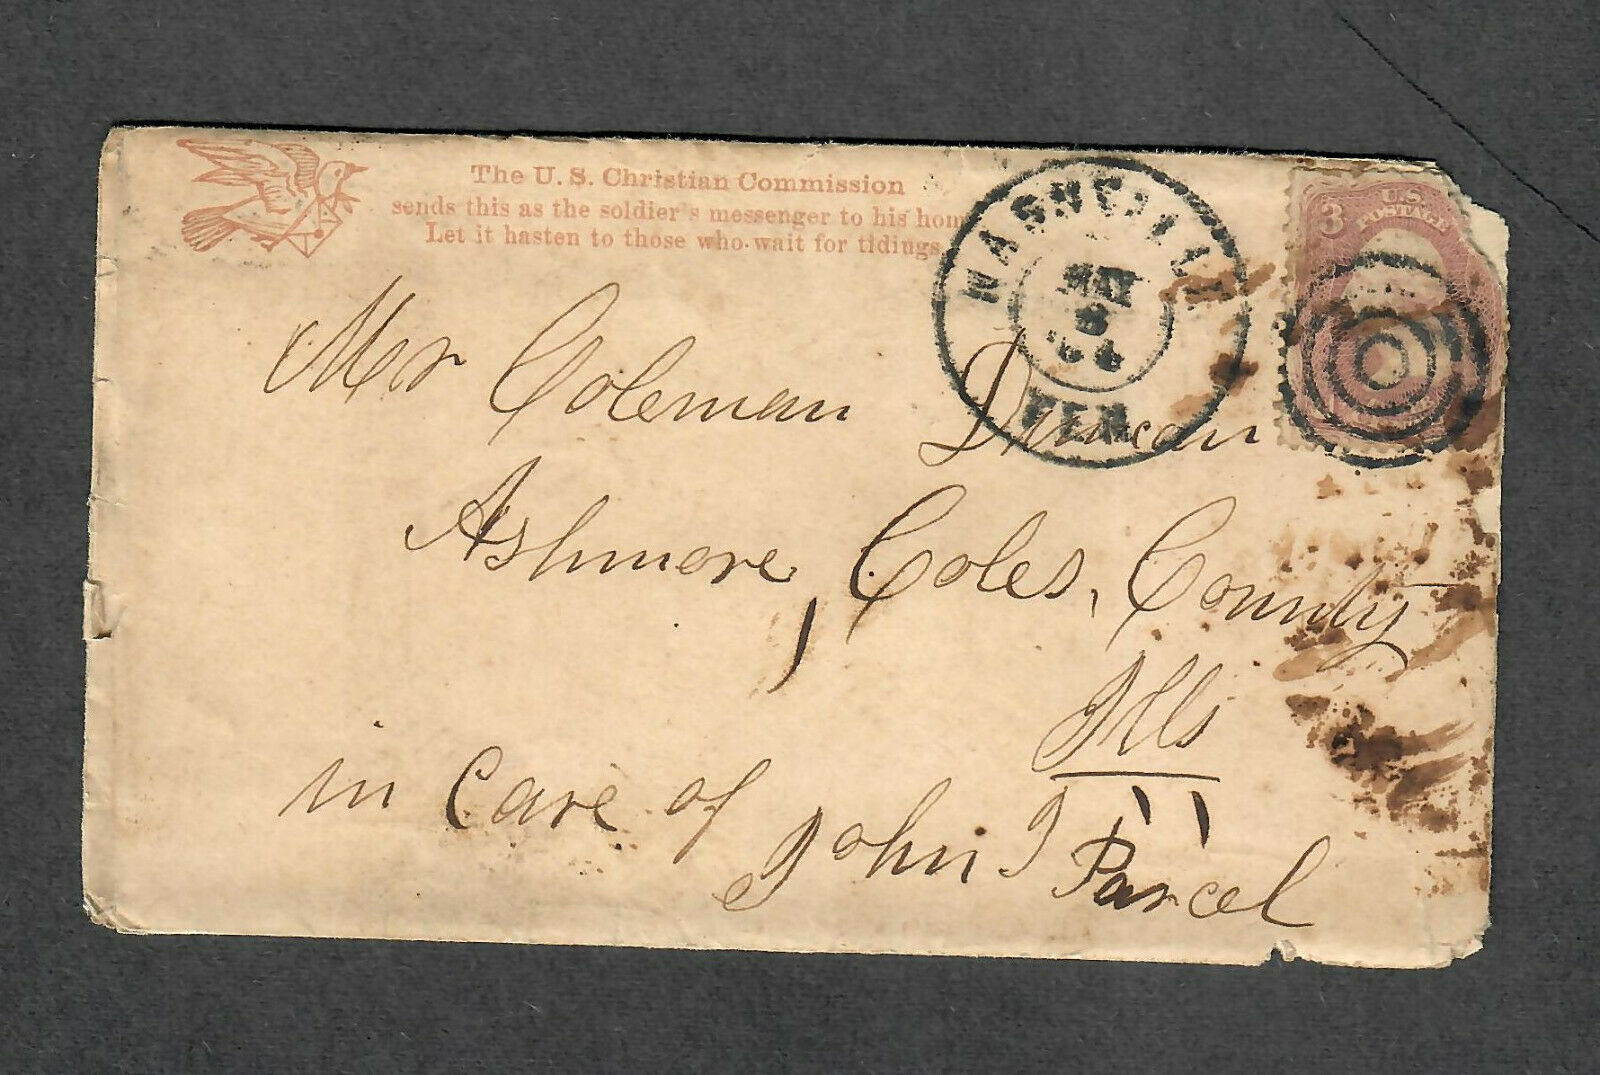 The U. S. Christian Commission
sends this as the soldier's messenger to his hom
Let it hasten to those who wait for tidings.
NASHVILLE
MAY
TEN
3
U.S.
POSTAGE
Mr Coleman Duncan
Ashmore, Coles, County
Ills
in care of
John J Parcel